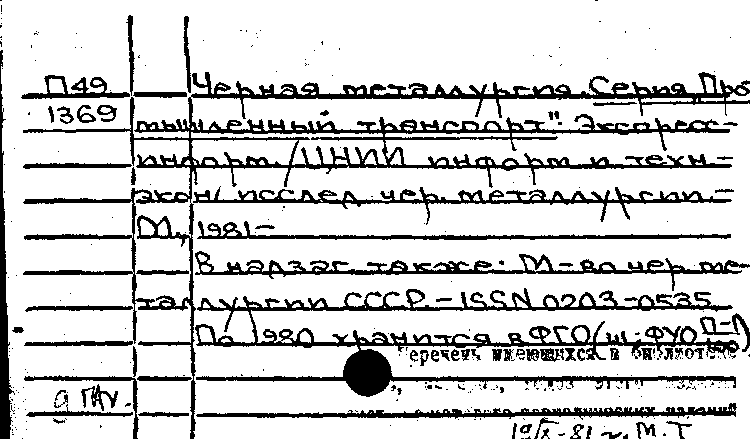 П49 Черная металлургия. Серия „Про
1369 мышленный транспорт". Экспресс-
информ. / ЦНИИ информ и техн.-
экон. исслед чер. металлургии.-
М., 1981-
В надзаг. также: М-во чер ме-
таллургии СССР.- ISSN 0203-0535
По 1980 хранится в ФГО (ш. ФУО П-П
перечень имеющихся в библиотеке
этого
9 ГАУ.
19/X-81 г. М.Т